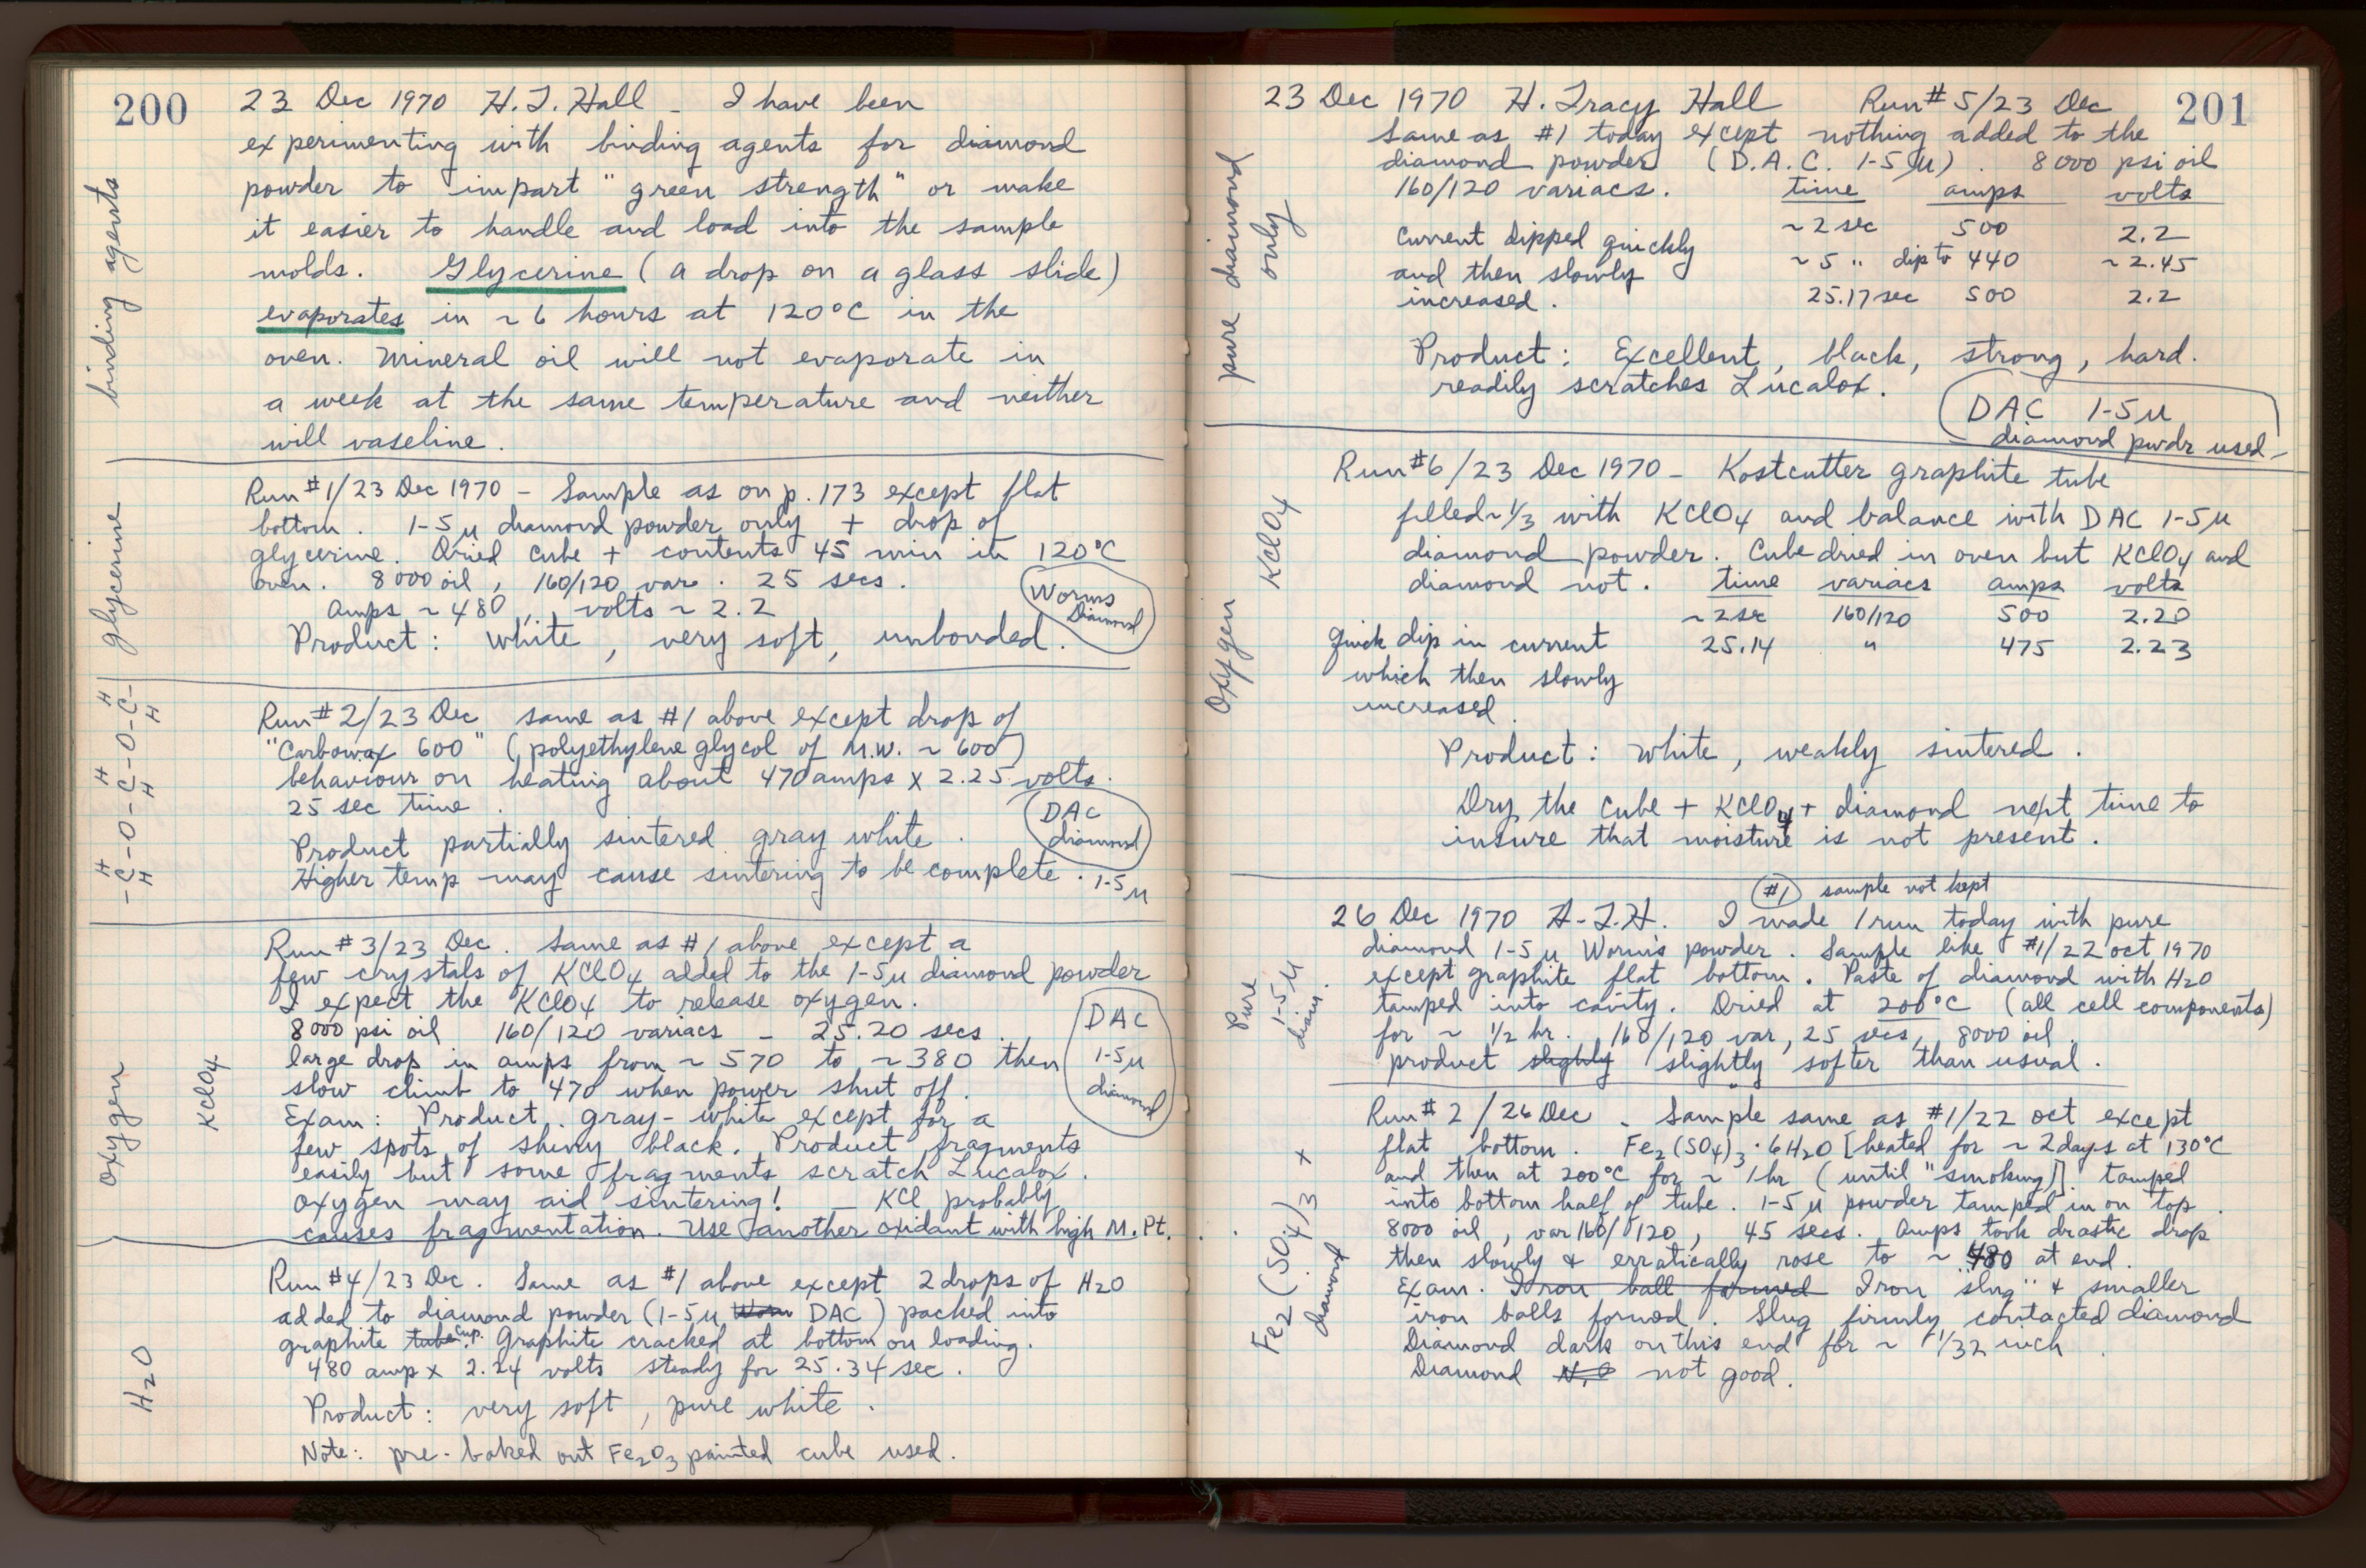 200
23 Dec 1970 H.T. Hall - I have been
experimenting with binding agents for diamond
powder to impart "green strength" or make
it easier to handle and load into the sample
molds. Glycerine (a drop on a glass slide)
evaporates in ~ 6 hours at 120°C in the
oven. Mineral oil will not evaporate in
a week at the same temperature and neither
will vaseline.
binding agents
Run #1/23 Dec 1970 - Sample as on p. 173 except flat
bottom. 1-5 μ diamond powder only + drop of
glycerine. Dried cube + contents 45 min in 120°C
oven. 8000 oil, 160/120 var. 25 secs.
amps ~ 480, volts ~ 2.2
Product: white, very soft, unbonded.
Worms
Diamond
glycerine
Run #2/23 Dec same as #1 above except drop of
"Carbowax 600" (polyethylene glycol of M.W. ~ 600)
behaviour on heating about 470 amps x 2.25 volts.
25 sec time.
Product partially sintered gray white.
Higher temp may cause sintering to be complete.
DAC
diamond
1-5 μ
H H H
-C-O-C-O-C-
H H H
Run #3/23 Dec. Same as #1 above except a
few crystals of KClO4 added to the 1-5μ diamond powder
I expect the KClO4 to release oxygen.
8000 psi oil 160/120 variacs - 25.20 secs.
large drop in amps from ~ 570 to ~ 380 then
slow climb to 470 when power shut off.
Exam: Product gray-white except for a
few spots of shiny black. Product fragments
easily but some fragments scratch Lucalox.
Oxygen may aid sintering! — KCl probably
causes fragmentation. Use another oxidant with high M.Pt.
DAC
1-5μ
diamond
oxygen
KClO4
Run #4/23 Dec. Same as #1 above except 2 drops of H2O
added to diamond powder (1-5μ Worm DAC) packed into
graphite tube cup. Graphite cracked at bottom on loading.
480 amp x 2.24 volts steady for 25.34 sec.
Product: very soft, pure white.
Note: pre-baked out Fe2O3 painted cube used.
H2O
201
23 Dec 1970 H. Tracy Hall Run #5/23 Dec
same as #1 today except nothing added to the
diamond powder (D.A.C. 1-5μ). 8000 psi oil
160/120 variacs. time amps volts
~2 sec 500 2.2
~5 " dip to 440 ~2.45
25.17 sec 500 2.2
Current dipped quickly
and then slowly
increased.
Product: Excellent, black, strong, hard.
readily scratches Lucalox.
DAC 1-5μ
diamond pwdr used
pure diamond
only
Run #6/23 Dec 1970 - Kostcutter graphite tube
filled ~ 1/3 with KClO4 and balance with DAC 1-5μ
diamond powder. Cube dried in oven but KClO4 and
diamond not. time variacs amps volts
~2 sec 160/120 500 2.20
25.14 " 475 2.23
Quick dip in current
which then slowly
increased.
Product: white, weakly sintered.
Dry the cube + KClO4 + diamond next time to
insure that moisture is not present.
Oxygen
KClO4
#1 sample not kept
26 Dec 1970 H.T.H. I made 1 run today with pure
diamond 1-5 μ Worm's powder. Sample like #1/22 oct 1970
except graphite flat bottom. Paste of diamond with H2O
tamped into cavity. Dried at 200°C (all cell components)
for ~ 1/2 hr. 160/120 var, 25 secs, 8000 oil.
product slighly slightly softer than usual.
Pure
1-5μ
diam.
Run #2/26 Dec - Sample same as #1/22 oct except
flat bottom. Fe2(SO4)3·6H2O [heated for ~ 2 days at 130°C
and then at 200°C for ~ 1 hr (until "smoking)]. tamped
into bottom half of tube. 1-5 μ powder tamped in on top.
8000 oil, var 160/120, 45 secs. Amps took drastic drop
then slowly & erratically rose to ~ 480 at end.
Exam. Iron ball formed Iron "slug" & smaller
iron balls formed. Slug firmly contacted diamond
Diamond dark on this end for ~ 1/32 inch.
Diamond not good.
Fe2(SO4)3 +
diamond